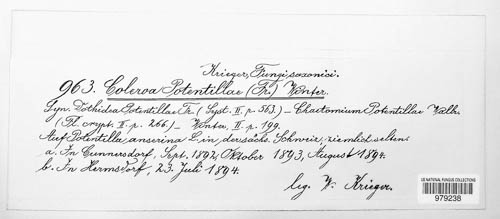 Krieger, Fungi saxonici.
963. Coleroa Potentillae (Fr.) Winter.
Syn. Dothidea Potentillae Fr. (Syst. II. p. 563.) – Chaetomium Potentillae Wallr.
(Fl. crypt. II. p. 266.) – Winter, II. p. 199.
Auf Potentilla anserina L. in der sächs. Schweiz, ziemlich selten.
a. In Cunnersdorf, Sept. 1892, Oktober 1893, August 1894.
b. In Hermsdorf, 23. Juli 1894.
leg. W. Krieger.
US NATIONAL FUNGUS COLLECTIONS
979238